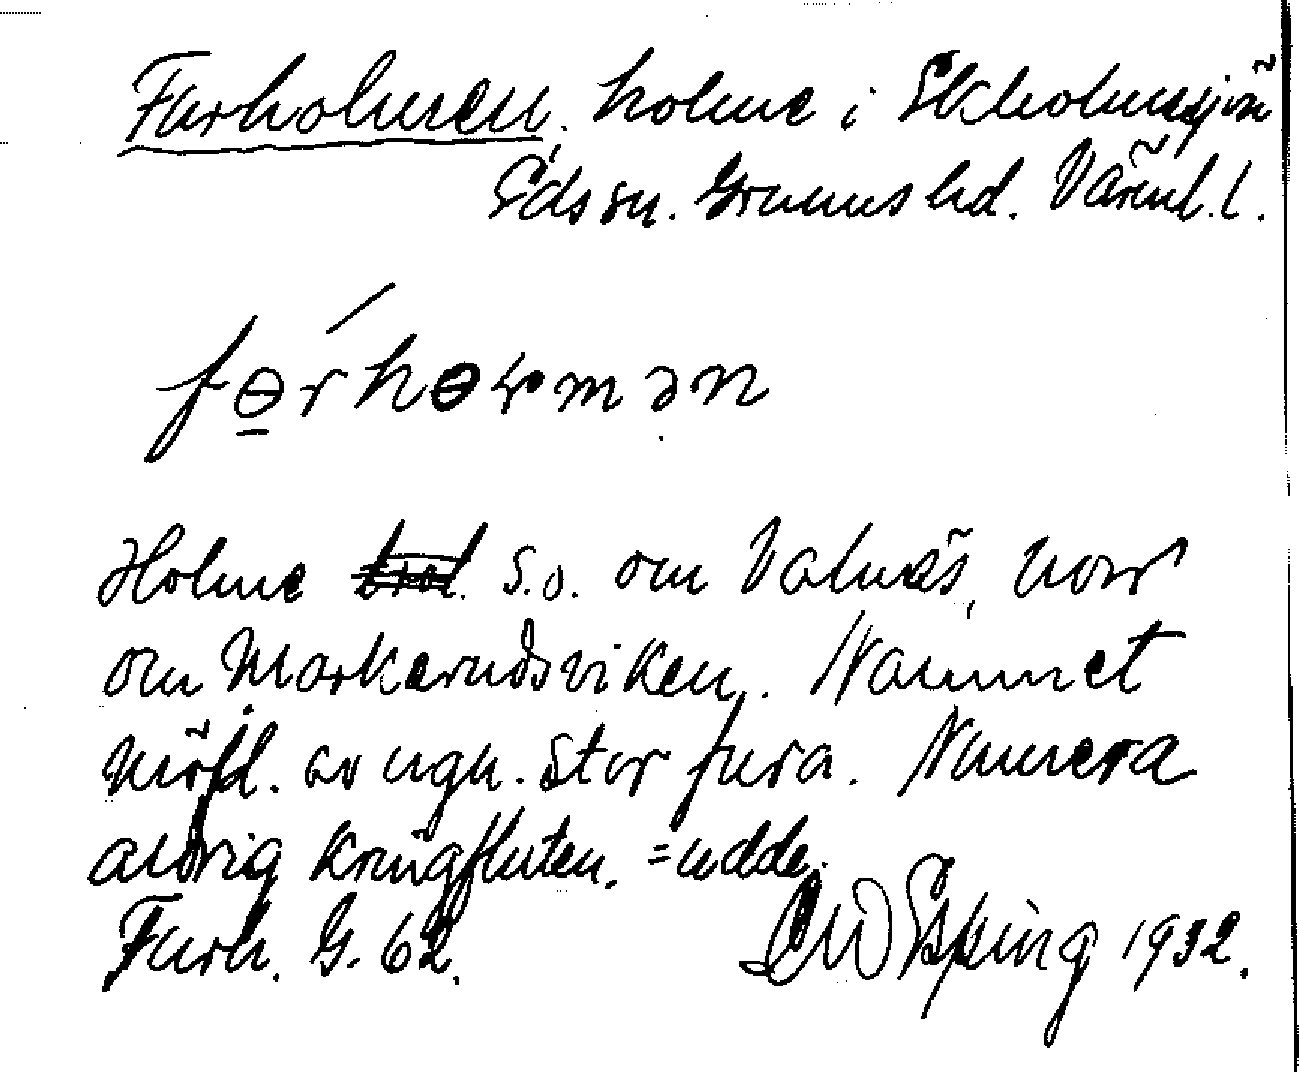 Furholmen, holme i Ekholmssjön
Eds sn. Grums hd. Värml. l.
fɵrhɵɽmən
Holme s.o. om Valnäs, norr
om Markerudsviken. Namnet
möjl. av ngn. stor fura. Numera
aldrig kringfluten. = udde.
Furh. G. 62. Epping 1932.